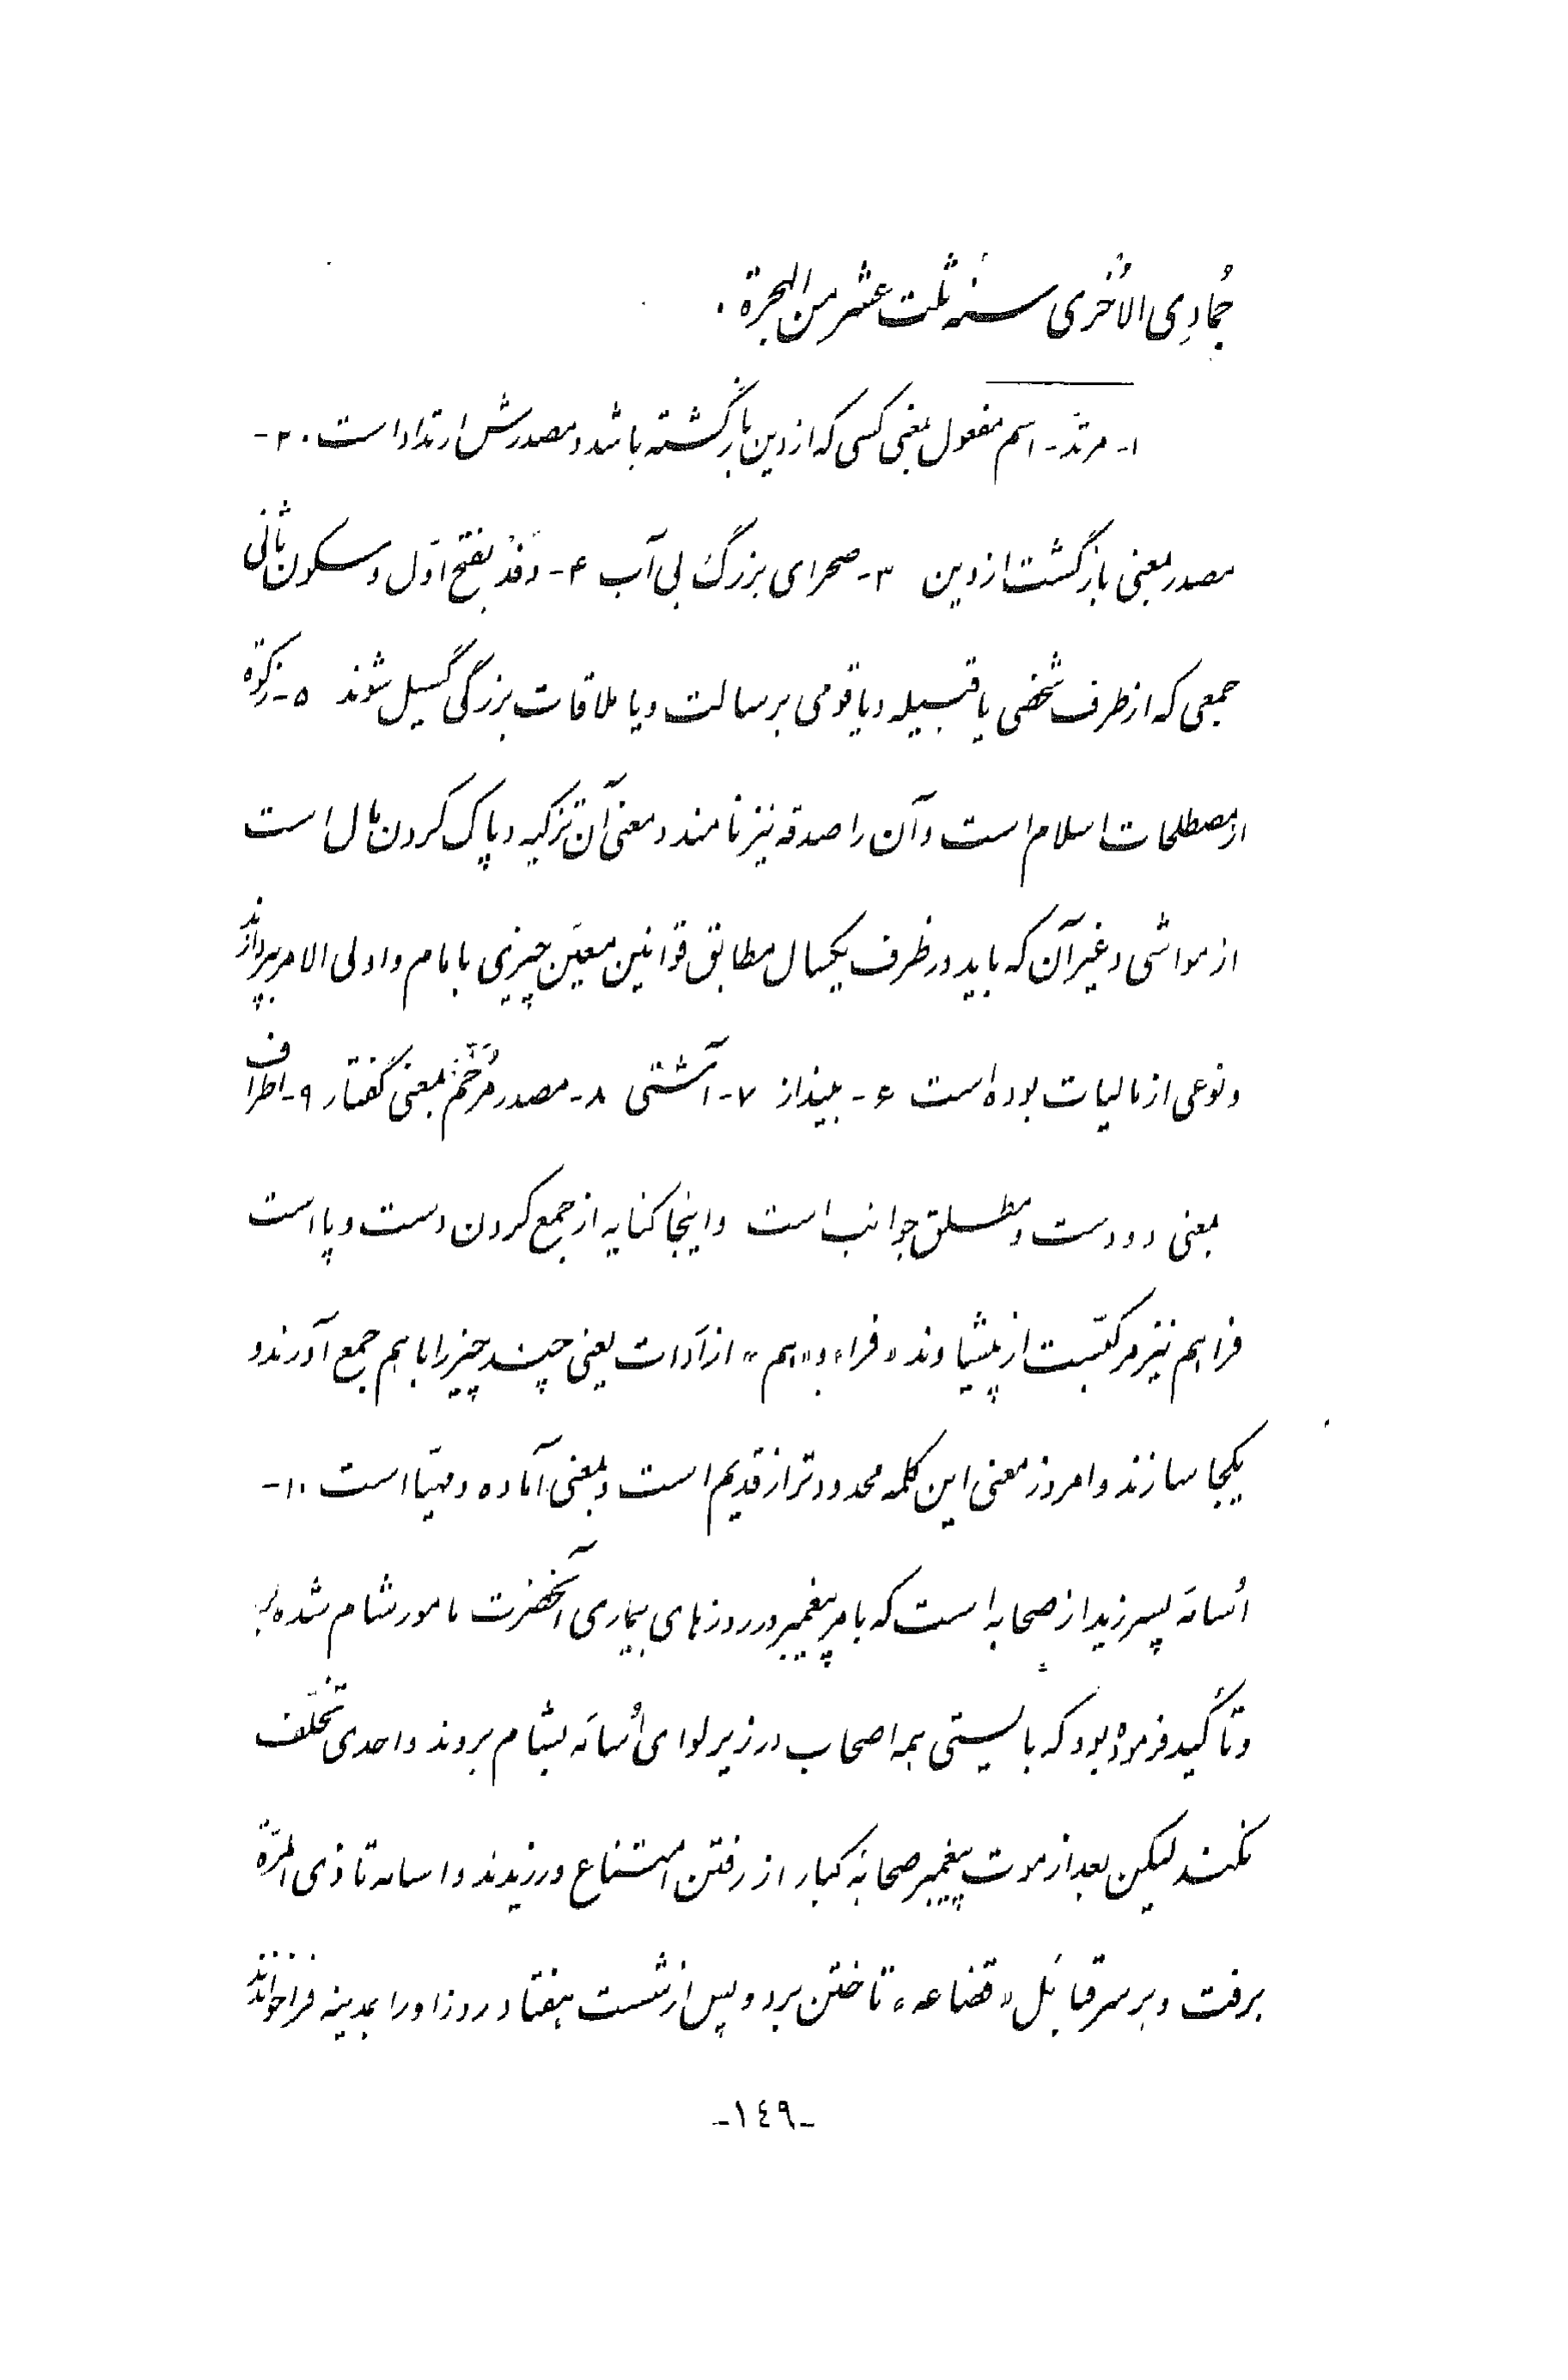 جُمادِی الاُخری سنهٔ ثلث عشر من الهجرة .
۱- مرتدّ - اسم مفعول بمعنی کسی که از دین بازگشته باشد و مصدرش ارتداد است . ۲-
مصدر بمعنی بازگشت از دین ۳- صحرای بزرگ بی آب ۴- وَفْد بفتح اوّل و سکون ثانی
جمعی که از طرف شخصی یا قبیله و یا قومی برسالت و یا ملاقات بزرگی گسیل شوند ۵- زکوة
از مصطلحات اسلام است و آن را صدقه نیز نامند و معنی آن تزکیه و پاک کردن مال است
از مواشی و غیر آن که باید در ظرف یکسال مطابق قوانین معیّن چیزی بامام و اولی الامر بپردازند
و نوعی از مالیات بوده است ۶- بینداز ۷- آشتی ۸- مصدر مُرَخَّم بمعنی گفتار ۹- اطراف
بمعنی دو دست و مطلق جوانب است و اینجا کنایه از جمع کردن دست و پا است
فراهم نیز مرکّبست از پیشاوند «فرا» و «هم» از اَدات یعنی چند چیز را با هم جمع آورند و
یکجا سازند و امروز معنی این کلمه محدودتر از قدیم است و بمعنی آماده و مهیّا است ۱۰-
اُسامَه پسر زید از صحابه است که بامر پیغمبر در روزهای بیماری آنحضرت مامور شام شده
و تأکید فرموده بود که بایستی همه اصحاب در زیر لوای اُسامَه بشام بروند و احدی تخلّف
نکند لیکن بعد از موت پیغمبر صحابهٔ کبار از رفتن امتناع ورزیدند و اسامه تا ذی المرّة
برفت و بر سر قبائل «قضاعه» تاختن برد و پس از شست هفتاد روز او را بمدینه فراخواندند
-١٤٩-